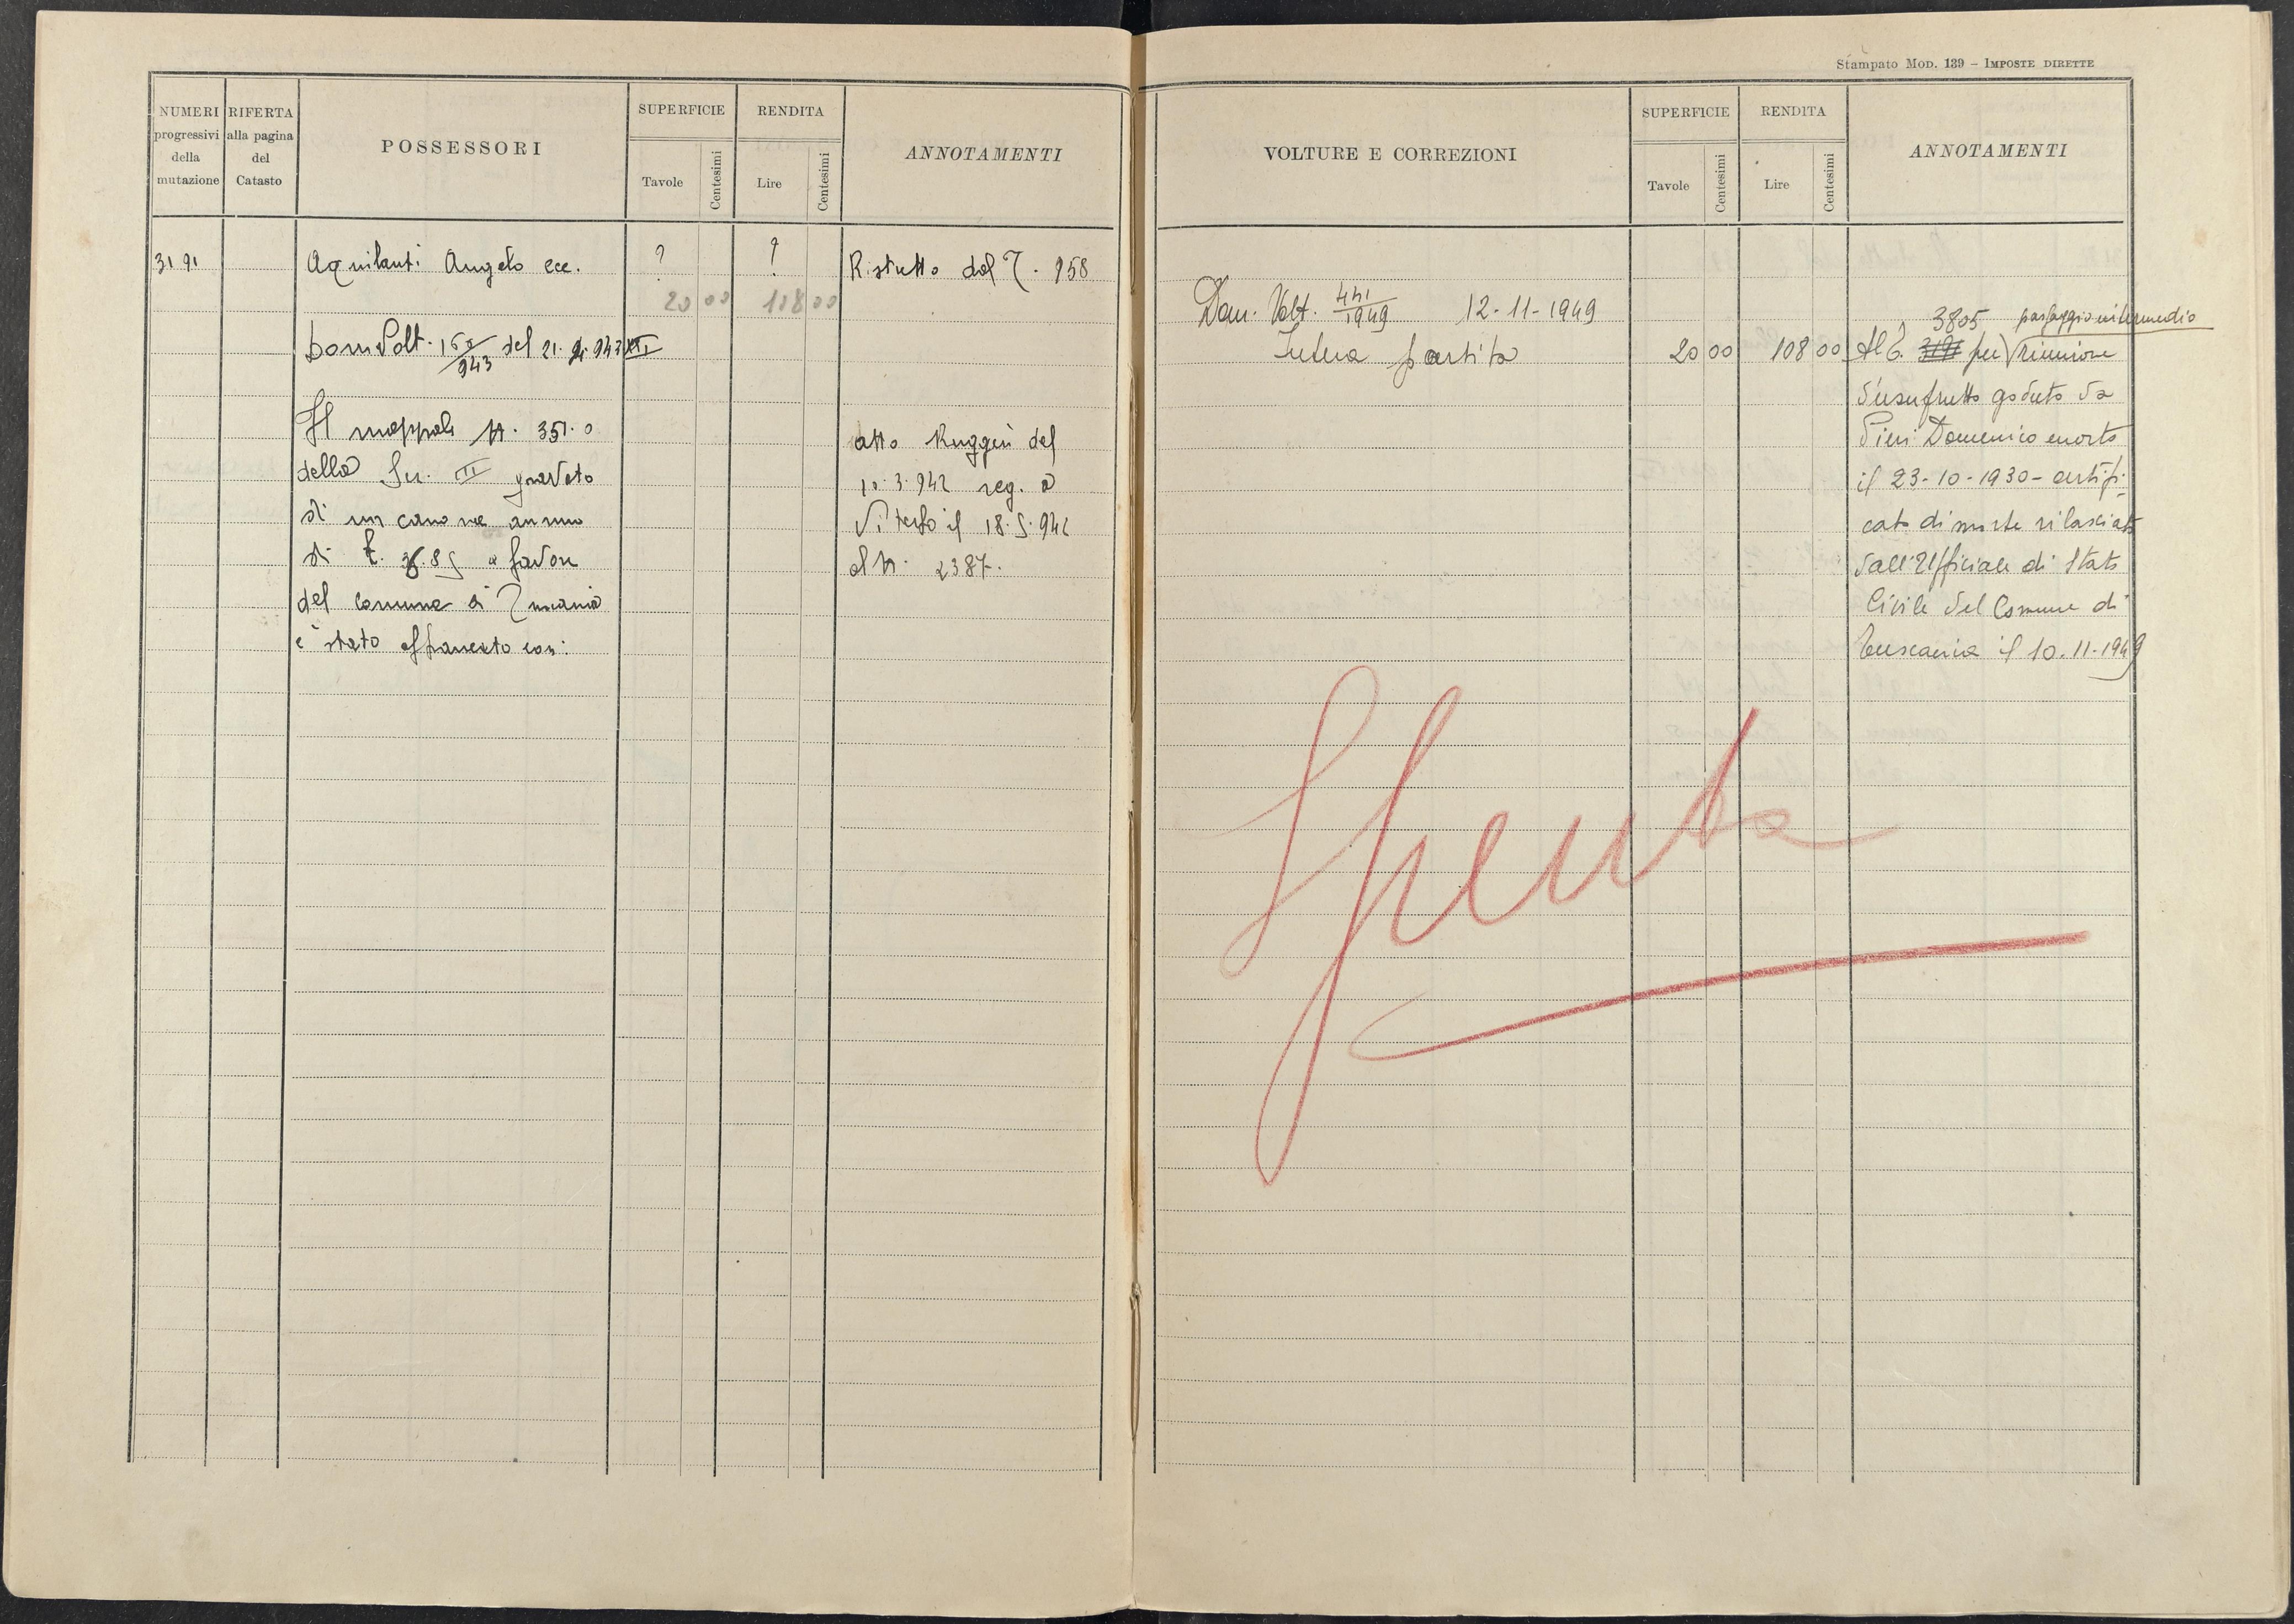 NUMERI progressivi della mutazione
RIFERTA alla pagina del Catasto
POSSESSORI
SUPERFICIE
Tavole
Centesimi
RENDITA
Lire
Centesimi
ANNOTAMENTI
3191
Aquilanti Angelo ecc.
?
?
Ristretto dal T. 958
20 00
108 00
Dom Volt. 943 del 21.
Il mappale N. 351.0
della Sez. III gravato
di un canone annuo
di £. a favore
del comune di Tuscania
è stato affrancato con:
atto Ruggeri del
10.3.942 reg. a
Viterbo il 18.5.942
al N. 2387.
Stampato MOD. 139 – IMPOSTE DIRETTE
VOLTURE E CORREZIONI
SUPERFICIE
Tavole
Centesimi
RENDITA
Lire
Centesimi
ANNOTAMENTI
Dom. Volt. 441/1949 12-11-1949
3805 passaggio intermedio
Intera partita
20 00
108 00
Al per riunione
d'usufrutto goduto da
Pieri Domenico morto
il 23-10-1930 – certifi-
cato di morte rilasciato
dall'Ufficiale di Stato
Civile del Comune di
Tuscania il 10.11.1949
Spenta